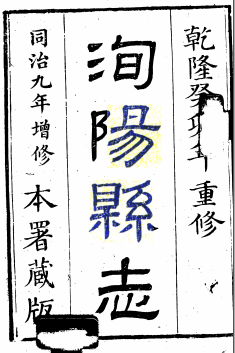 乾隆癸卯年重修
洵陽縣志
同治九年增修
本署藏版